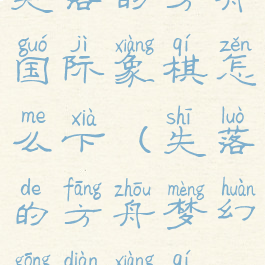 guó jì xiàng qí zěn
国际象棋怎
me xià shī luò
么下(失落
de fāng zhōu mèng huàn
的方舟梦幻
gōng diàn xiàng qí